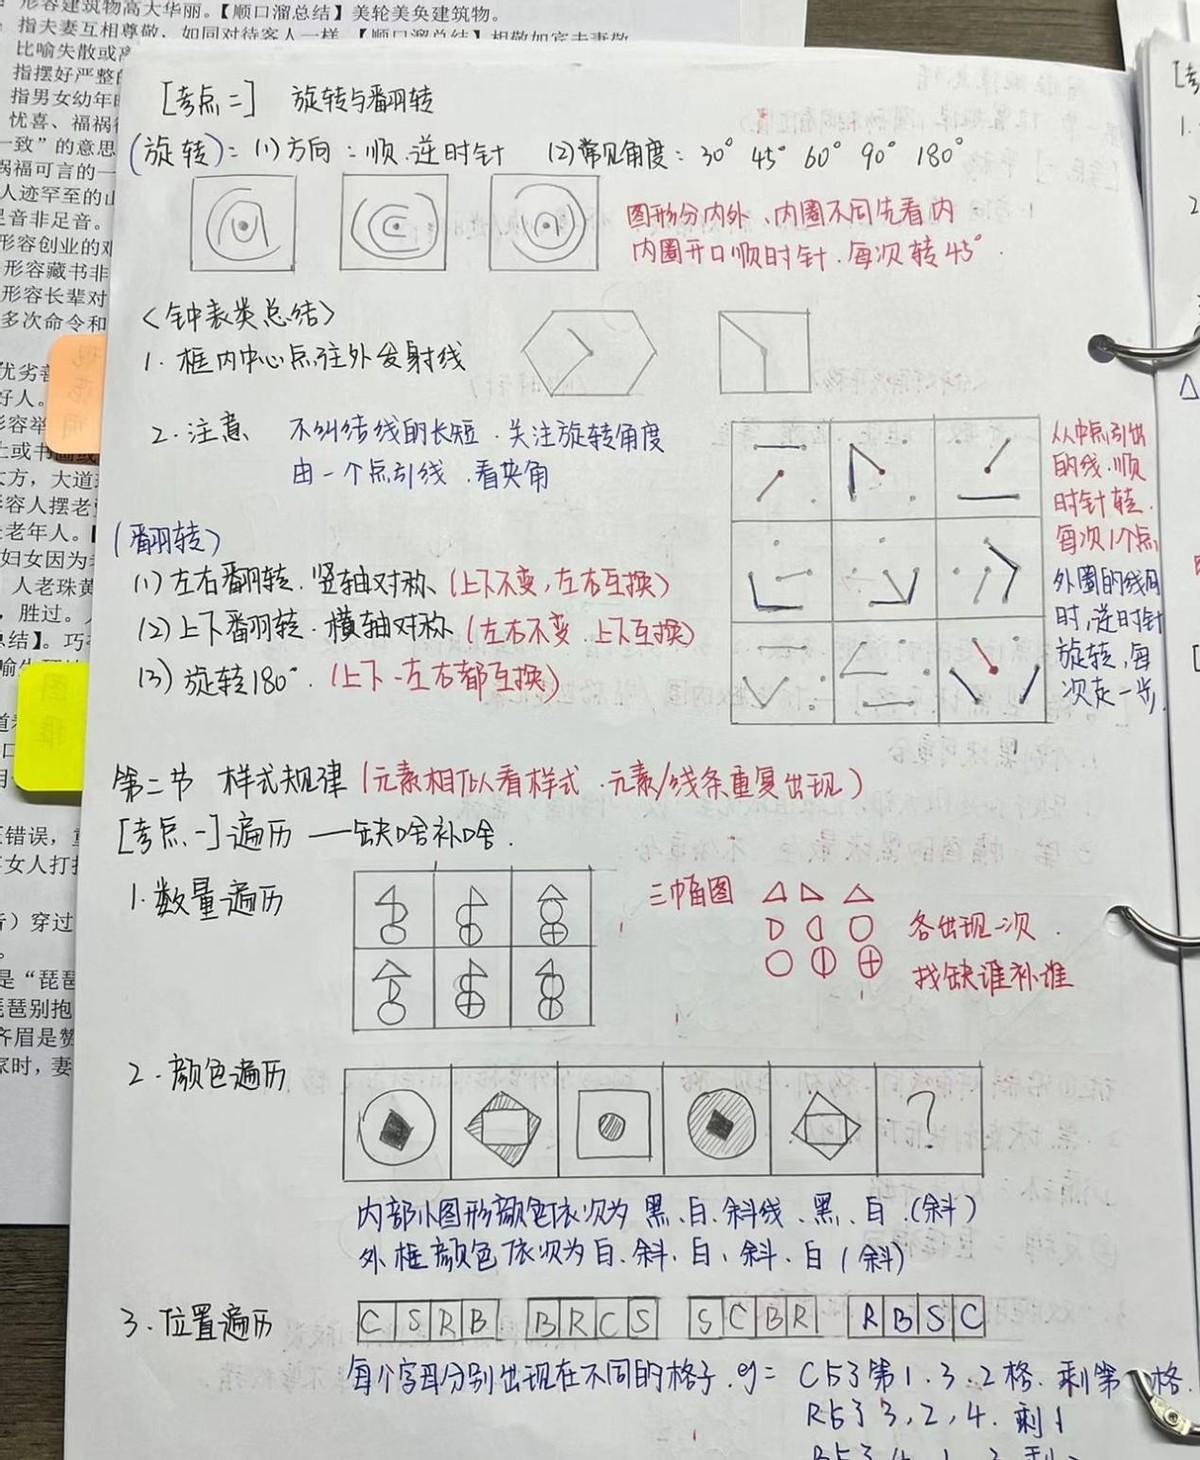 形容建筑物高大华丽。【顺口溜总结】美轮美奂建筑物。
指夫妻互相尊敬，如同对待客人一样。【顺口溜总结】相敬如宾夫妻敬
比喻失散或
指摆好严整的
指男女幼年
忧喜、福祸
一致”的意思
祸福可言的一
人迹罕至的山
足音非足音。
形容创业的艰
形容藏书非
形容长辈对
多次命令和
优劣善
好人。
形容举
土或书
大方，大道
形容人摆老
老年人。【
妇女因为
人老珠黄
，胜过。
总结】。巧
错误，
女人打扮
）穿过
是“琵琶
琵琶别抱
齐眉是赞
家时，妻
[考点二] 旋转与翻转
(旋转): (1) 方向: 顺.逆时针 (2)常见角度: 30° 45° 60° 90° 180°
图形分内外、内圈不同先看内
内圈开口顺时针.每次转45°
<钟表类总结>
1. 框内中心点往外发射线
2.注意 不纠结线的长短.关注旋转角度
由一个点引线.看夹角
从中点引出
的线.顺
时针转.
每次1个点
外圈的线同
时,逆时针
旋转,每
次走一步.
(翻转)
(1)左右翻转.竖轴对称(上下不变,左右互换)
(2)上下翻转.横轴对称(左右不变.上下互换)
(3)旋转180°.(上下-左右都互换)
第二节 样式规律(元素相似看样式.元素/线条重复出现)
[考点一]遍历 ——缺啥补啥.
1.数量遍历
三幅图
各出现一次.
找缺谁补谁
2.颜色遍历
?
内部小图形颜色依次为 黑、白、斜线、黑、白.(斜)
外框颜色依次为白、斜、白、斜、白(斜)
3.位置遍历 C S R B B R C S S C B R R B S C
每个字母分别出现在不同的格子.eg= C占了第1.3.2格.剩第一格.
R占了3,2,4.剩1